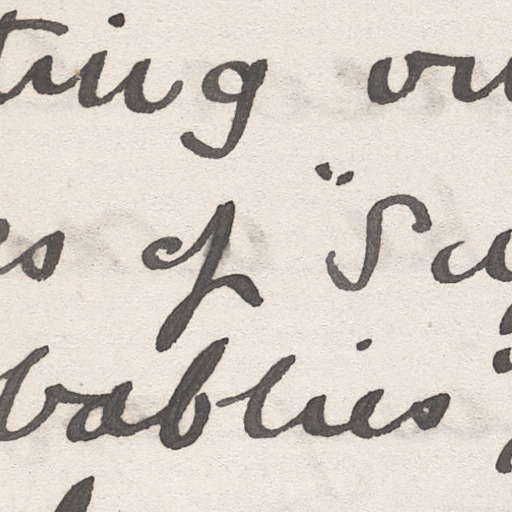 ting ou
es of "Su
bablies"